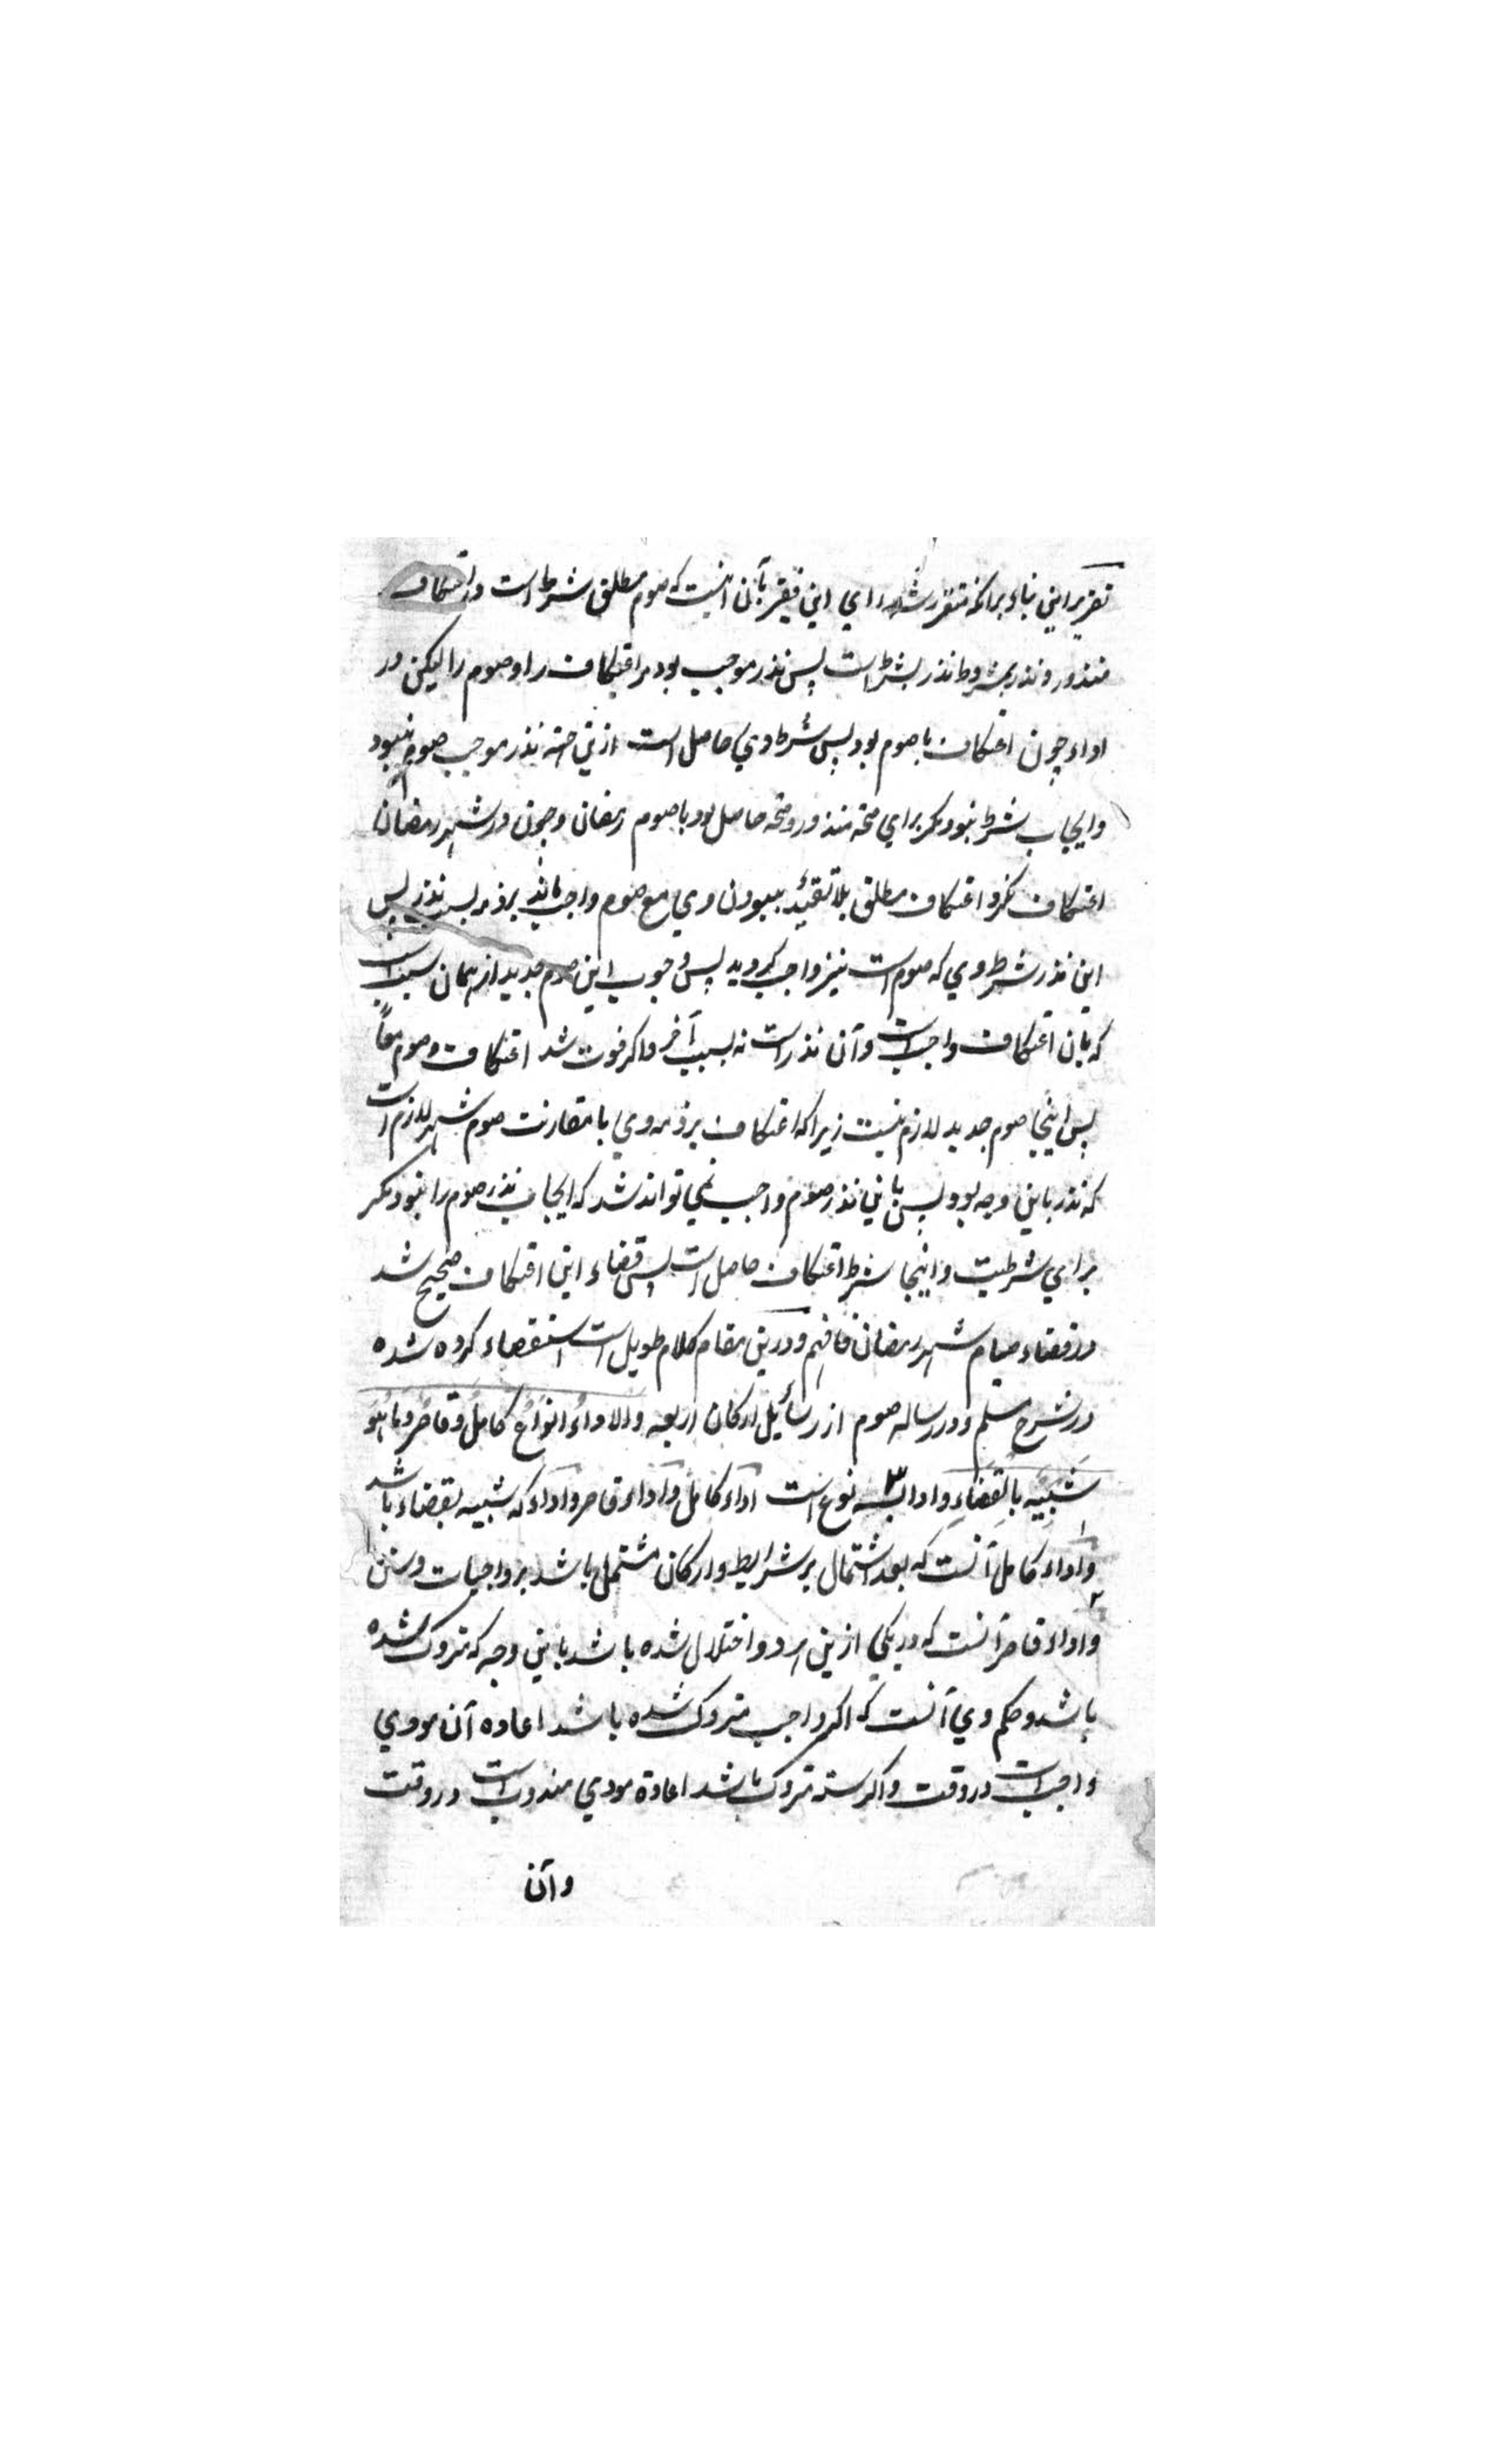 تقریر این بناء برانکه متقرر شده رای این فقیر بآن اینست که صوم مطلق شرط است در اعتکاف
منذور و نذر مشروط نذر بشرط است پس نذر موجب بود مر اعتکاف را و صوم را لیکن در
اداء چون اعتکاف با صوم بود پس شرط وي حاصل است ازین جهته نذر موجب صوم نبود
و ایجاب شرط نبود مگر براي صحة منذور و صحة حاصل بود با صوم رمضان و چون در شهر رمضان
اعتکاف نکرد اعتکاف مطلق بلا تقیید ببودن وي مع صوم واجب ماند برذمه بسبب نذر پس
این نذر شرط وي که صوم است نیز واجب گردید پس وجوب این صوم جدید از همان سبب است
که بآن اعتکاف واجب است و آن نذر است نه بسبب آخر و اگر فوت شد اعتکاف و صوم معاً
پس اینجا صوم جدید لازم نیست زیرا که اعتکاف برذمه وي با مقارنت صوم شهر لازم است
که نذر باین وجه بود پس باین نذر صوم واجب نمي تواند شد که ایجاب نذر صوم را نبود مگر
براي شرطیت و اینجا شرط اعتکاف حاصل است پس قضاء این اعتکاف صحیح شد
در قضاء صیام شهر رمضان فافهم و درین مقام کلام طویل است استقصاء کرده شده
در شرح مسلم و در رساله صوم از رسائل ارکان اربعه والاداءُ انواعٌ کاملٌ وقاصرٌ وما هُوَ
شَبِیهٌ بالقضاءِ و ادا بر سه ۳ نوع است اداء کامل و اداء قاصر و اداء که شبیه بقضاء باشد
۱ و اداء کامل آنست که بعد اشتمال بر شرایط و ارکان مشتمل باشد بر واجبات و سنن
۲ و اداء قاصر آنست که در یکي ازین هر دو اختلال شده باشد باین وجه که متروک شده
باشد و حکم وي آنست که اگر واجب متروک شده باشد اعاده آن مودي
واجب است در وقت و اگر سنه متروک باشد اعادة مودي مندوب است در وقت
و آن